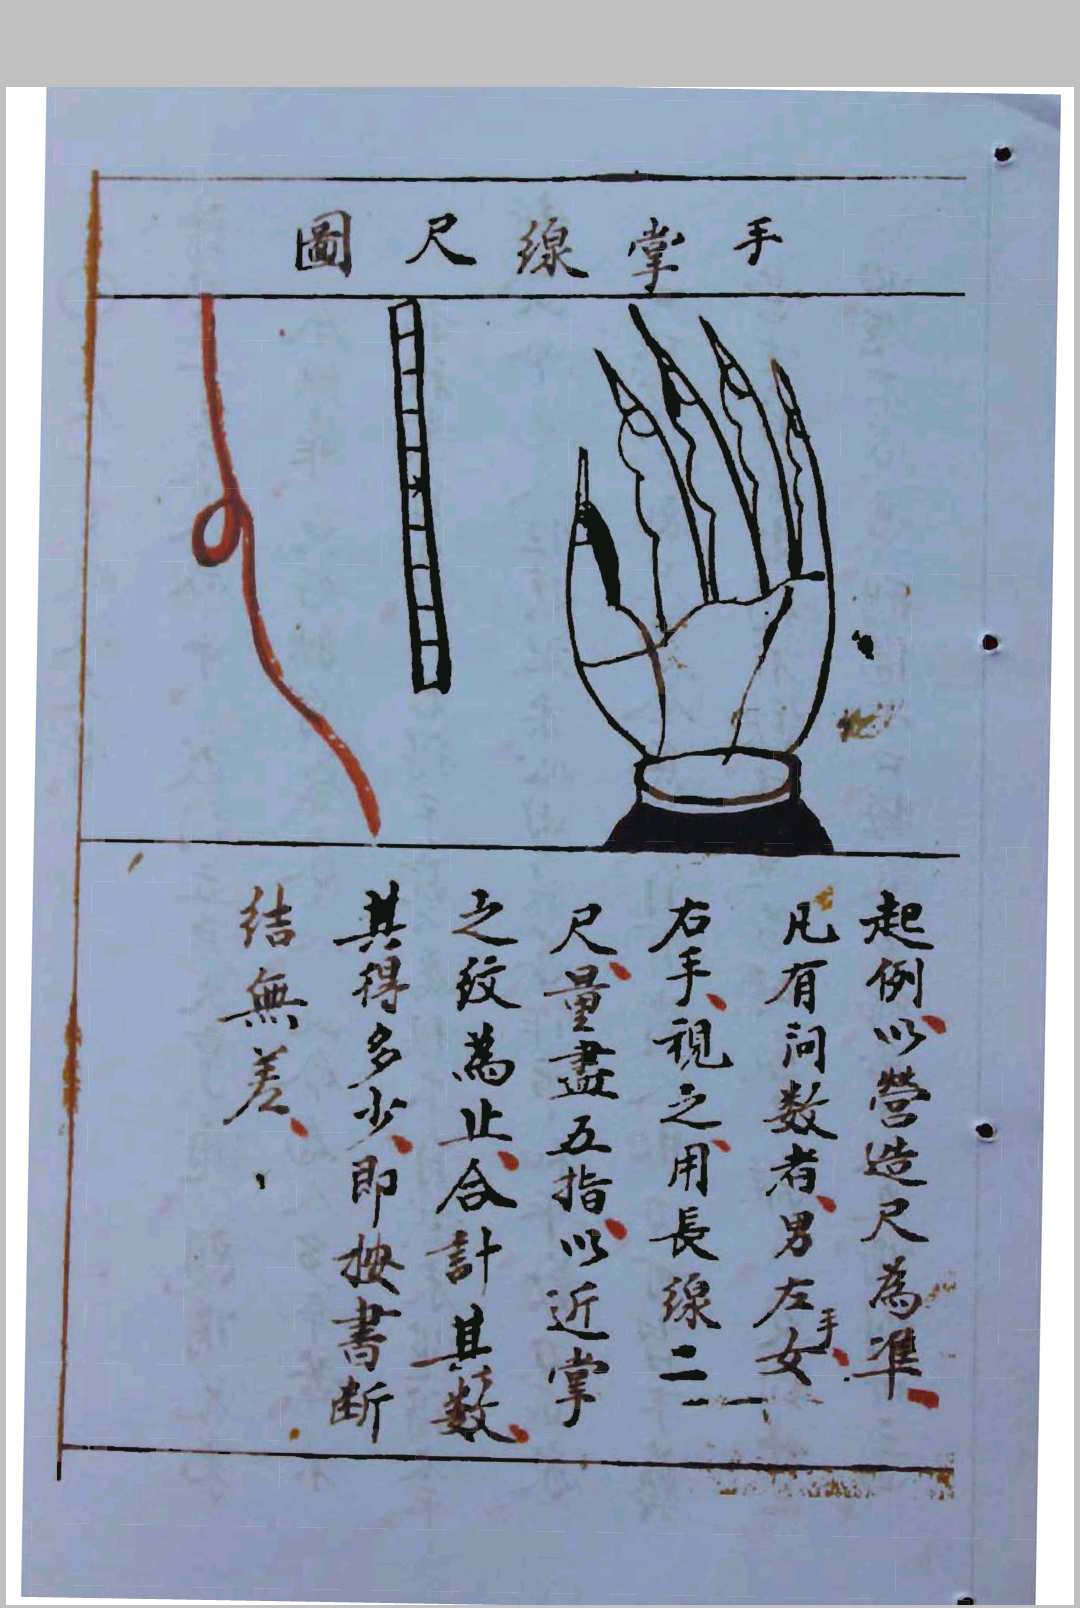 手掌線尺圖
起例、以營造尺為準、
凡有问数者、男左手、女
右手、視之、用長線二
尺、量盡五指、以近掌
之紋為止、合計其数、
其得多少、即按書断
结無差、